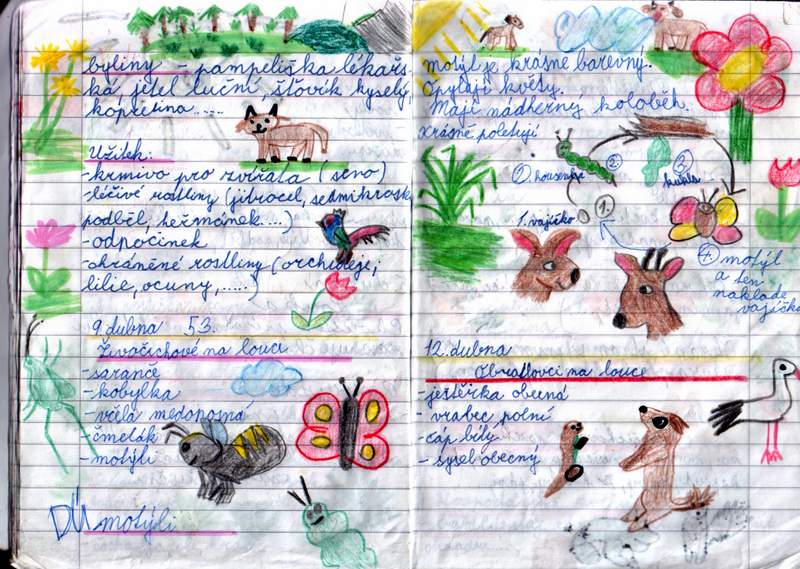 byliny - pampeliška lékařs-
ká jetel luční šťovík kyselý,
kopretina.....
Užitek:
-krmivo pro zvířata (seno)
-léčivé rostliny (jitrocel, sedmikrásk
podběl, heřmánek....)
-odpočinek
-chráněné rostliny (orchideje,
lilie, ocuny,.....)
9. dubna 53.
Živočichové na louce
-saranče
-kobylka
-včela medonosná
-čmelák
-motýli
DÚ motýli
motýl je krásně barevný.
Opylují květy.
Mají nádherný koloběh.
Krásně poletují
1. vajíčko
1.
2. housenka
2.
3.
kukla
4. motýl
a ten
naklade
vajíčka
12. dubna
Obratlovci na louce
-ještěrka obecná
-vrabec polní
-čáp bílý
-sysel obecný